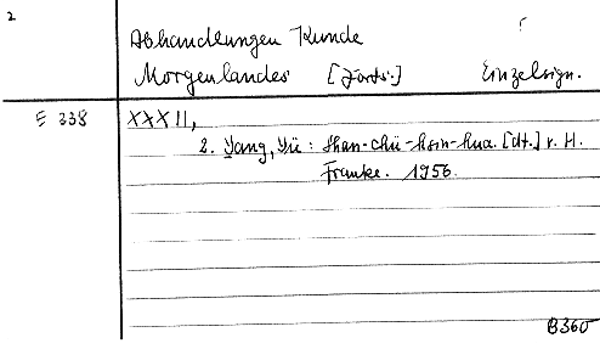 2
Abhandlungen Kunde
Morgenlandes [Forts.] Einzelsign.
E 338 XXXII,
2. Yang, Yü: Shan-chü-hsin-hua. [dt.] v. H.
Franke. 1956.
B360